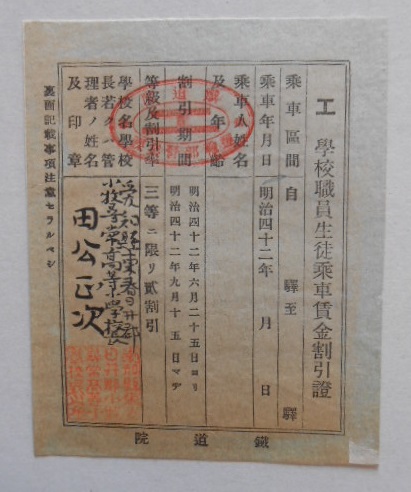 工 學校職員生徒乘車賃金割引證
乘車區間 自 驛至 驛
乘車年月日 明治四十二年 月 日
乘車人姓名及年齡
割引期間 明治四十二年六月二十五日ヨリ
明治四十二年九月十五日マデ
等級及割引率 三等ニ限リ貳割引
學校名學校長若クハ管理者ノ姓名及印章
愛知縣東春日井郡
小牧尋常高等小學校長
田公正次
裏面記載事項注意セラルベシ
鐵道院